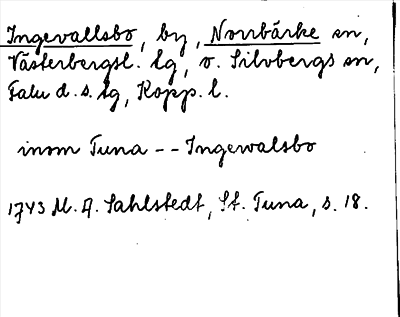 Ingevallsbo, by, Norrbärke sn,
Västerbergsl. lg, o. Silvbergs sn,
Falu d. s. lg, Kopp. l.
inom Tuna -- Ingewalsbo
1743 M. A. Sahlstedt, St. Tuna, s. 18.